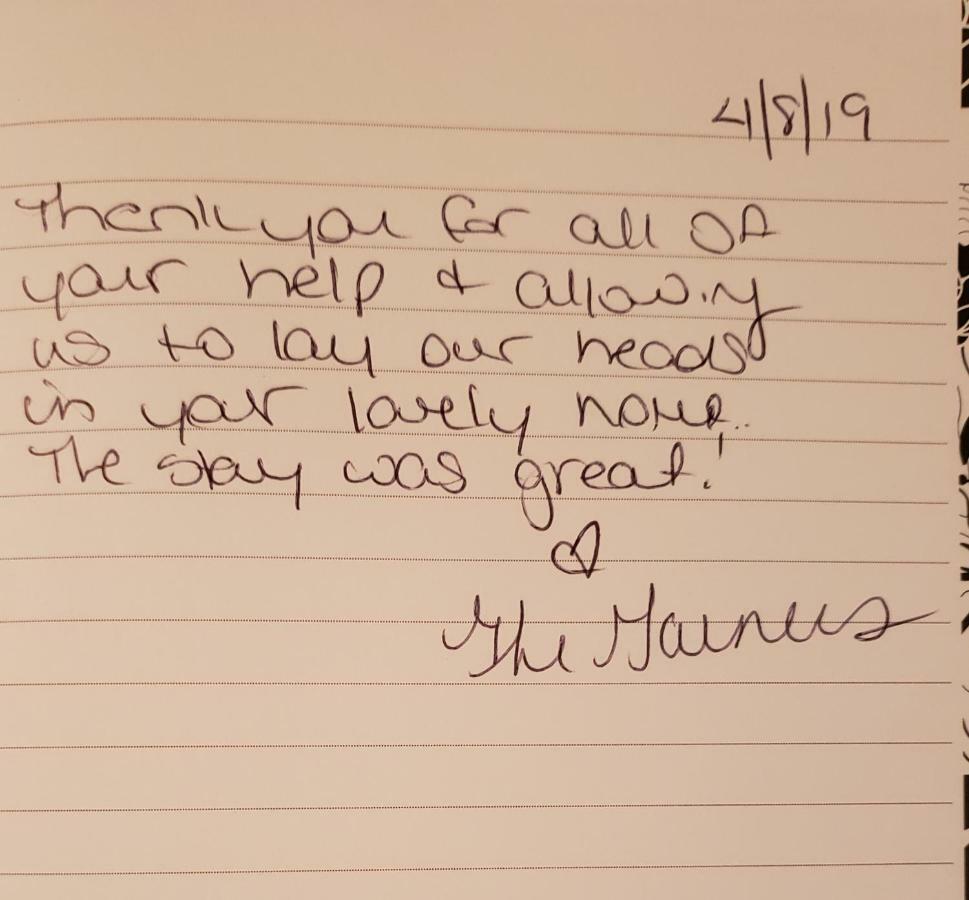 4/8/19
Thank you for all of
your help & allowing
us to lay our heads
in your lovely home..
The stay was great!
♡
The